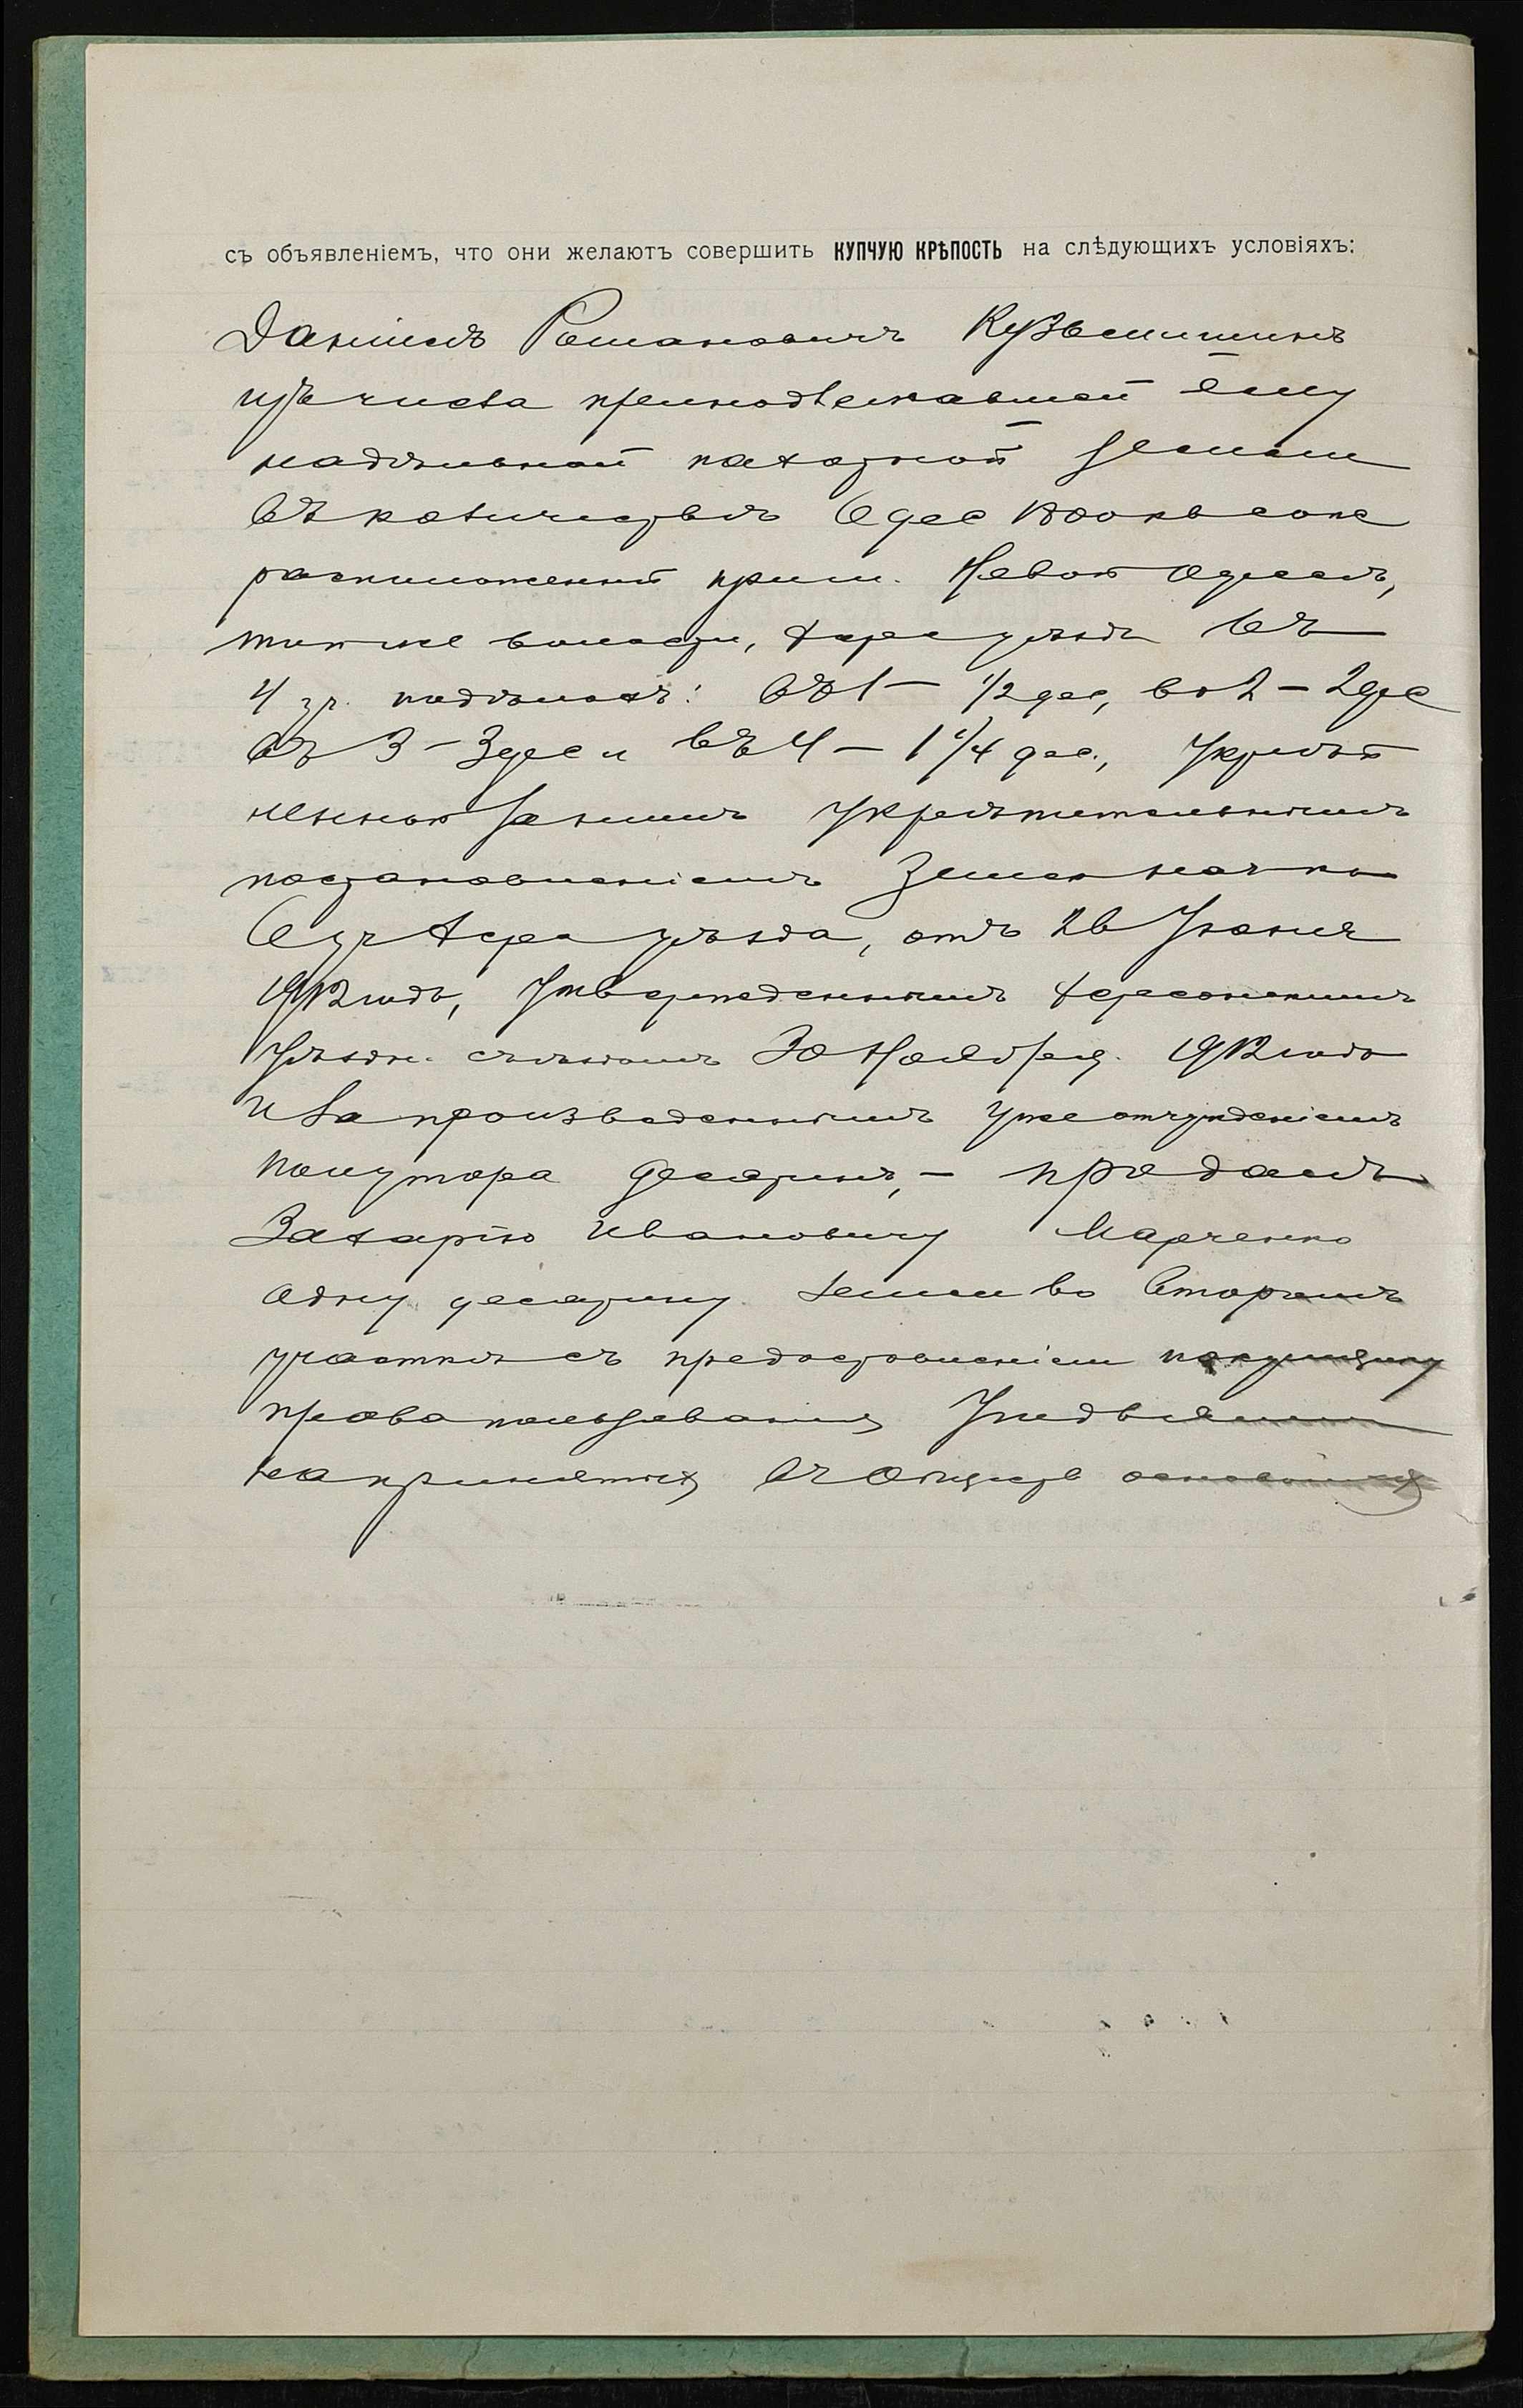 съ объявленіемъ, что они желаютъ совершить КУПЧУЮ КРѢПОСТЬ на слѣдующихъ условіяхъ:
Даніилъ Романовичъ Кузьмишинъ
изъ числа принадлежавшей ему
надѣльной пахатной земли
въ количествѣ 6 дес 1800 кв саж
расположенной при м. Новой Одессѣ,
той же волости, Херс уѣзда въ
4 уч. надѣлахъ: въ 1 — 1/2 дес, во 2 — 2 дес
въ 3 — 3 дес и въ 4 — 1 1/4 дес., укрѣп
ленной за нимъ укрѣпительнымъ
постановленіемъ Земск нач ка
6 уч Херс уѣзда, отъ 26 Іюня
1912 года, утвержденнымъ Херсонскимъ
Уѣздн. съѣздомъ 30 Ноября 1912 года
и за произведеннымъ уже отчужденіемъ
полутора десятинъ, — продалъ
Захарію Ивановичу Марченко
одну десятину земли во второмъ
участкѣ съ предоставленіем покупщику
права пользованія
на принятыхъ въ общест основаніяхъ